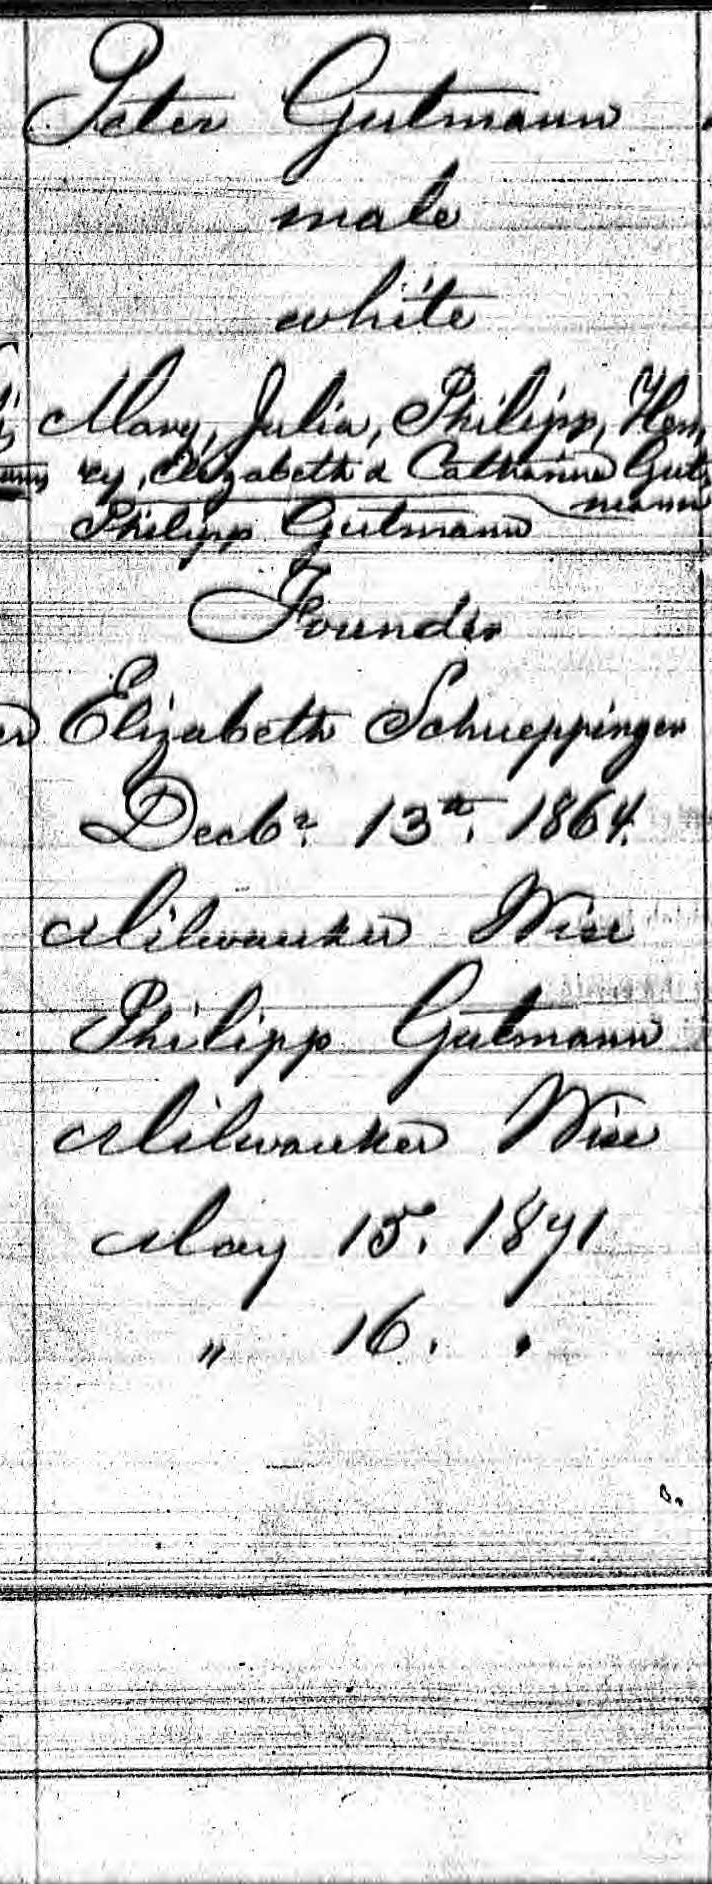 Peter Gutmann
male
white
Mary, Julia, Philipp, Hen
ry, Elizabeth & Catharine Gut
mann
Philipp Gutmann
Founder
Elizabeth Schueppinger
Decbr. 13th. 1864.
Milwaukee Wisc
Philipp Gutmann
Milwaukee Wisc
May 15. 1871
" 16. "